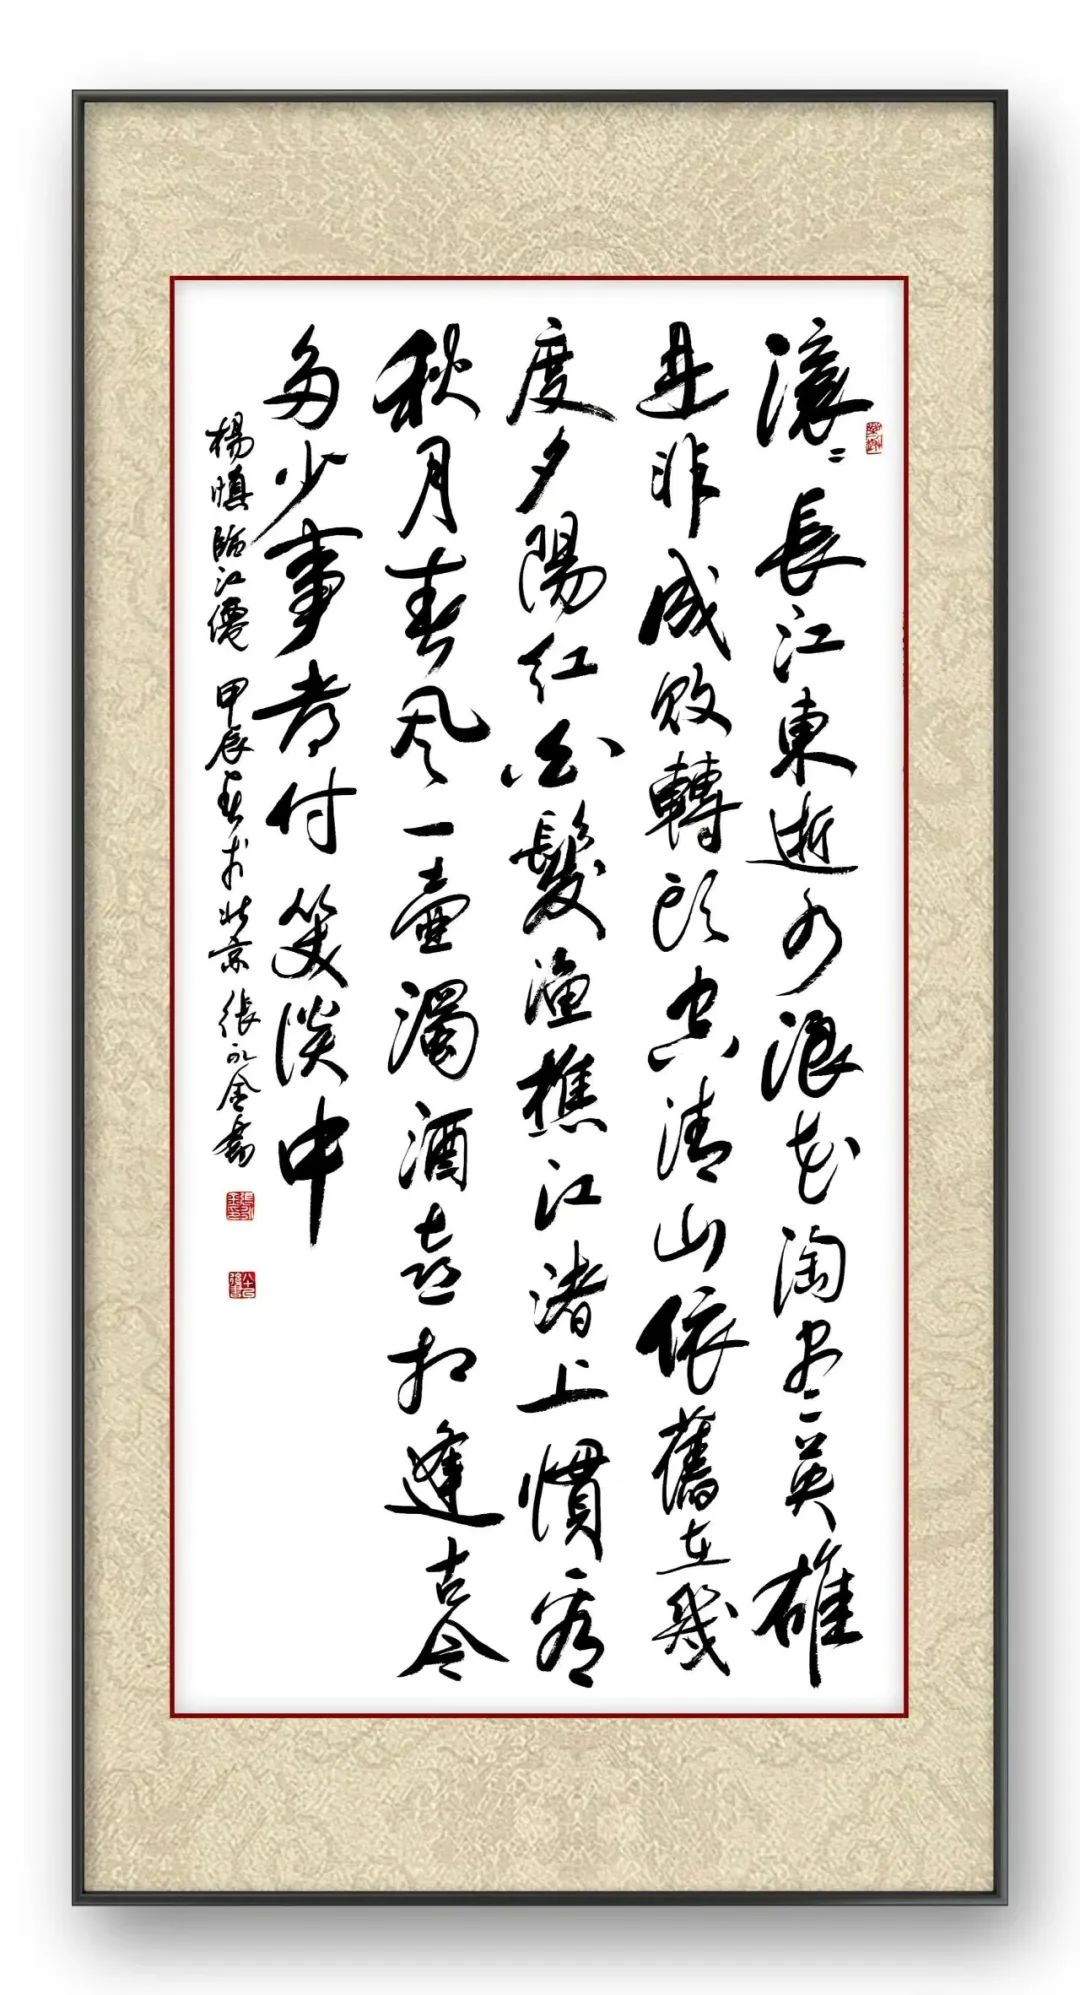 滾〻長江東逝水浪花淘尽英雄
是非成敗轉頭空清山依舊在幾
度夕陽紅白髮漁樵江渚上慣看
秋月春風一壺濁酒喜相逢古今
多少事都付笑談中
楊慎臨江僊 甲辰春於北京 張永金書